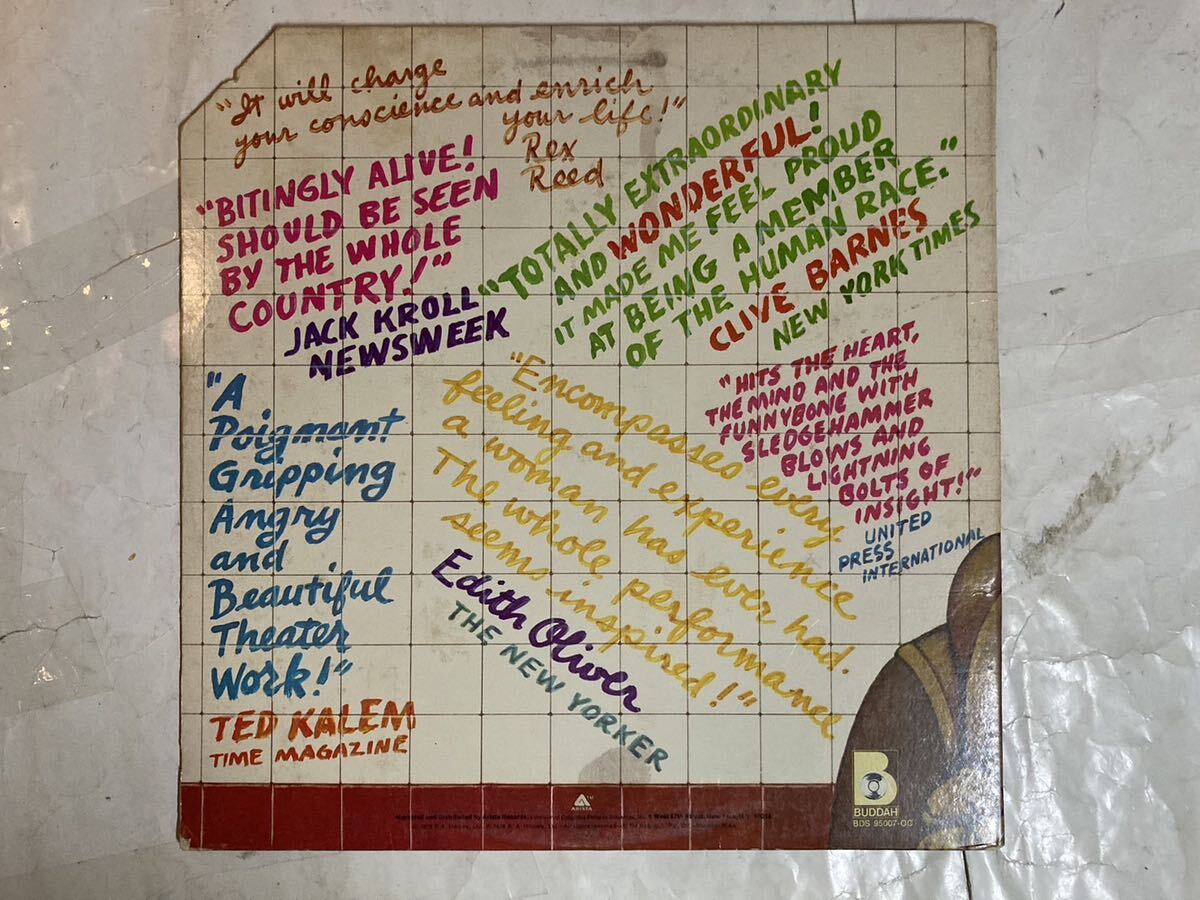 "It will charge
your conscience and enrich
your life!"
Rex
Reed
"BITINGLY ALIVE!
SHOULD BE SEEN
BY THE WHOLE
COUNTRY!"
JACK KROLL
NEWSWEEK
"TOTALLY EXTRAORDINARY
AND WONDERFUL!
IT MADE ME FEEL PROUD
AT BEING A MEMBER
OF THE HUMAN RACE."
CLIVE BARNES
NEW YORK TIMES
"HITS THE HEART,
THE MIND AND THE
FUNNYBONE WITH
SLEDGEHAMMER
BLOWS AND
LIGHTNING
BOLTS OF
INSIGHT!"
UNITED
PRESS
INTERNATIONAL
"A
Poigment
Gripping
Angry
and
Beautiful
Theater
Work!"
TED KALEM
TIME MAGAZINE
"Encompasses every
feeling and experience
a woman has ever had.
The whole performance
seems inspired!"
Edith Oliver
THE NEW YORKER
ARISTA
Marketed and Distributed by Arista Records,
B
BUDDAH
BDS 95007-OC